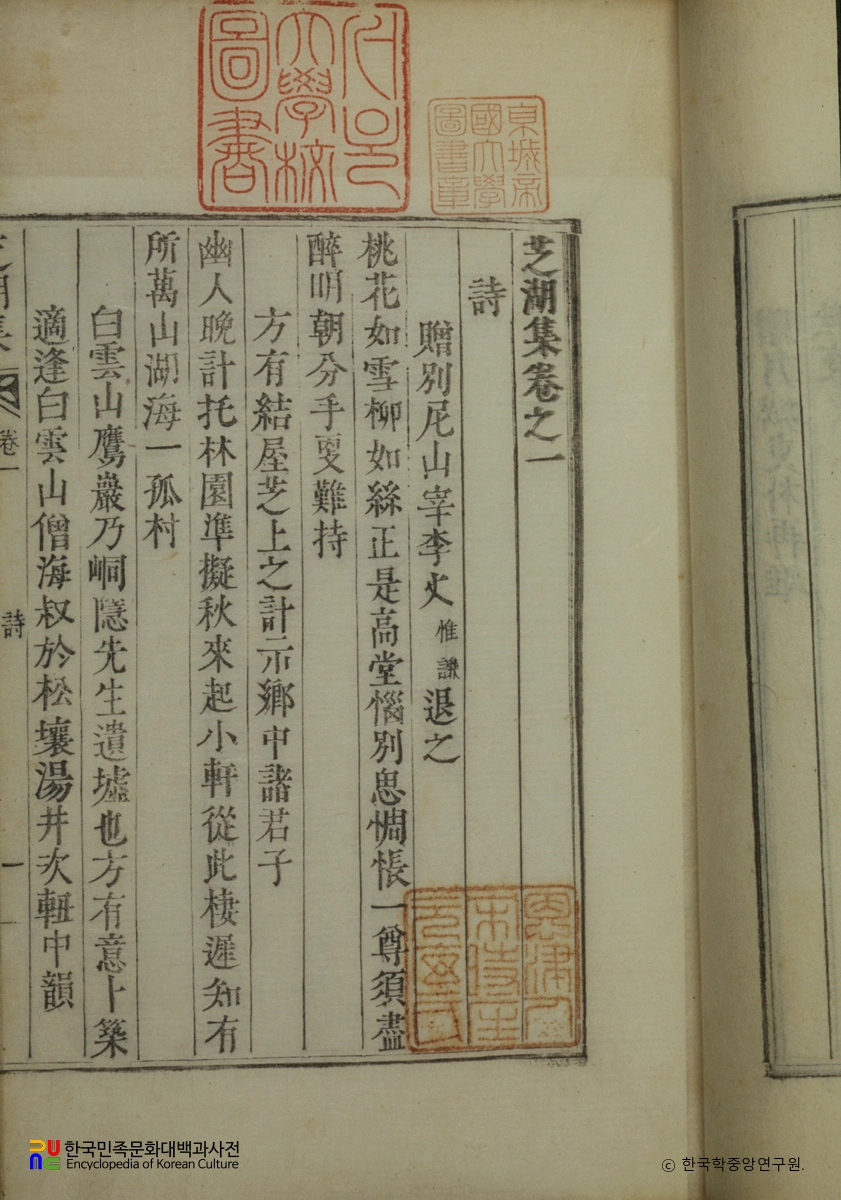 芝湖集卷之一
詩
贈別尼山宰李丈惟謙退之
桃花如雪柳如絲正是高堂惱別思惆悵一尊須盡
醉明朝分手更難持
方有結屋芝上之計示鄉中諸君子
幽人晚計托林園準擬秋來起小軒從此棲遲知有
所萬山湖海一孤村
白雲山鷹巖乃峒隱先生遺墟也方有意卜築
適逢白雲山僧海叔於松壤湯井次軸中韻
芝湖集 卷一 詩 一
京城帝
國大學
圖書章
大學校
圖書
한국민족문화대백과사전
Encyclopedia of Korean Culture
ⓒ 한국학중앙연구원.